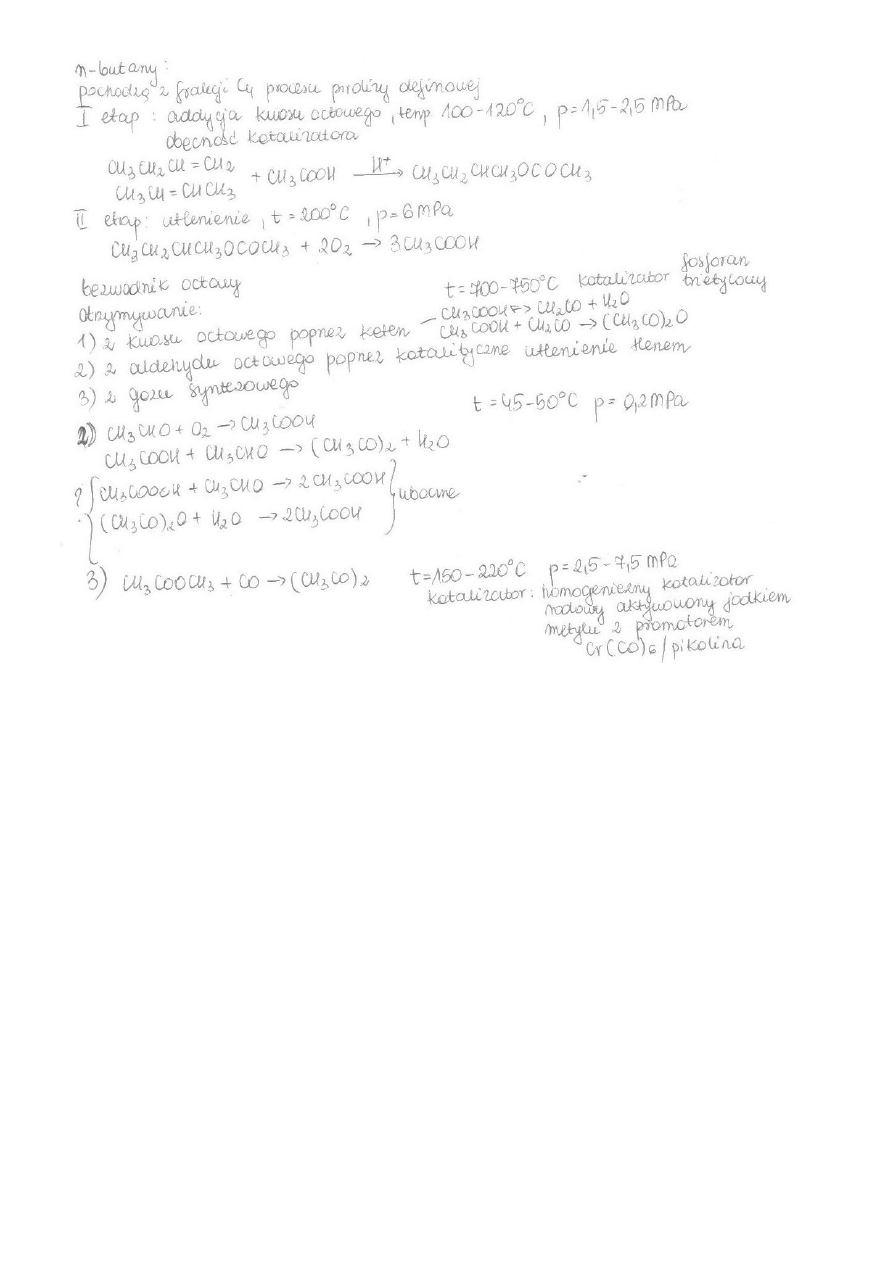 n-butany:
pochodzą z frakcji C4 procesu pirolizy olefinowej
I etap: addycja kwasu octowego, temp 100-120°C, p=1,5-2,5 MPa
obecność katalizatora
CH3CH2CH=CH2
CH3CH=CHCH3 + CH3COOH —H+→ CH3CH2CHCH3OCOCH3
II etap: utlenienie, t=200°C, p=6MPa
CH3CH2CHCH3OCOCH3 + 2O2 → 3CH3COOH
bezwodnik octowy t=700-750°C katalizator fosforan trietylowy
otrzymywanie:
1) z kwasu octowego poprzez keten – CH3COOH ↔ CH2CO + H2O
CH3COOH + CH2CO → (CH3CO)2O
2) z aldehydu octowego poprzez katalityczne utlenienie tlenem
3) z gazu syntezowego
t=45-50°C p=0,2MPa
2) CH3CHO + O2 → CH3COOH
CH3COOH + CH3CHO → (CH3CO)2 + H2O
? { CH3COOOH + CH3CHO → 2CH3COOH } uboczne
(CH3CO)2O + H2O → 2CH3COOH
3) CH3COOCH3 + CO → (CH3CO)2 t=150-220°C p=2,5-7,5 MPa
katalizator: homogeniczny katalizator
rodowy aktywowany jodkiem
metylu z promotorem
Cr(CO)6/pikolina